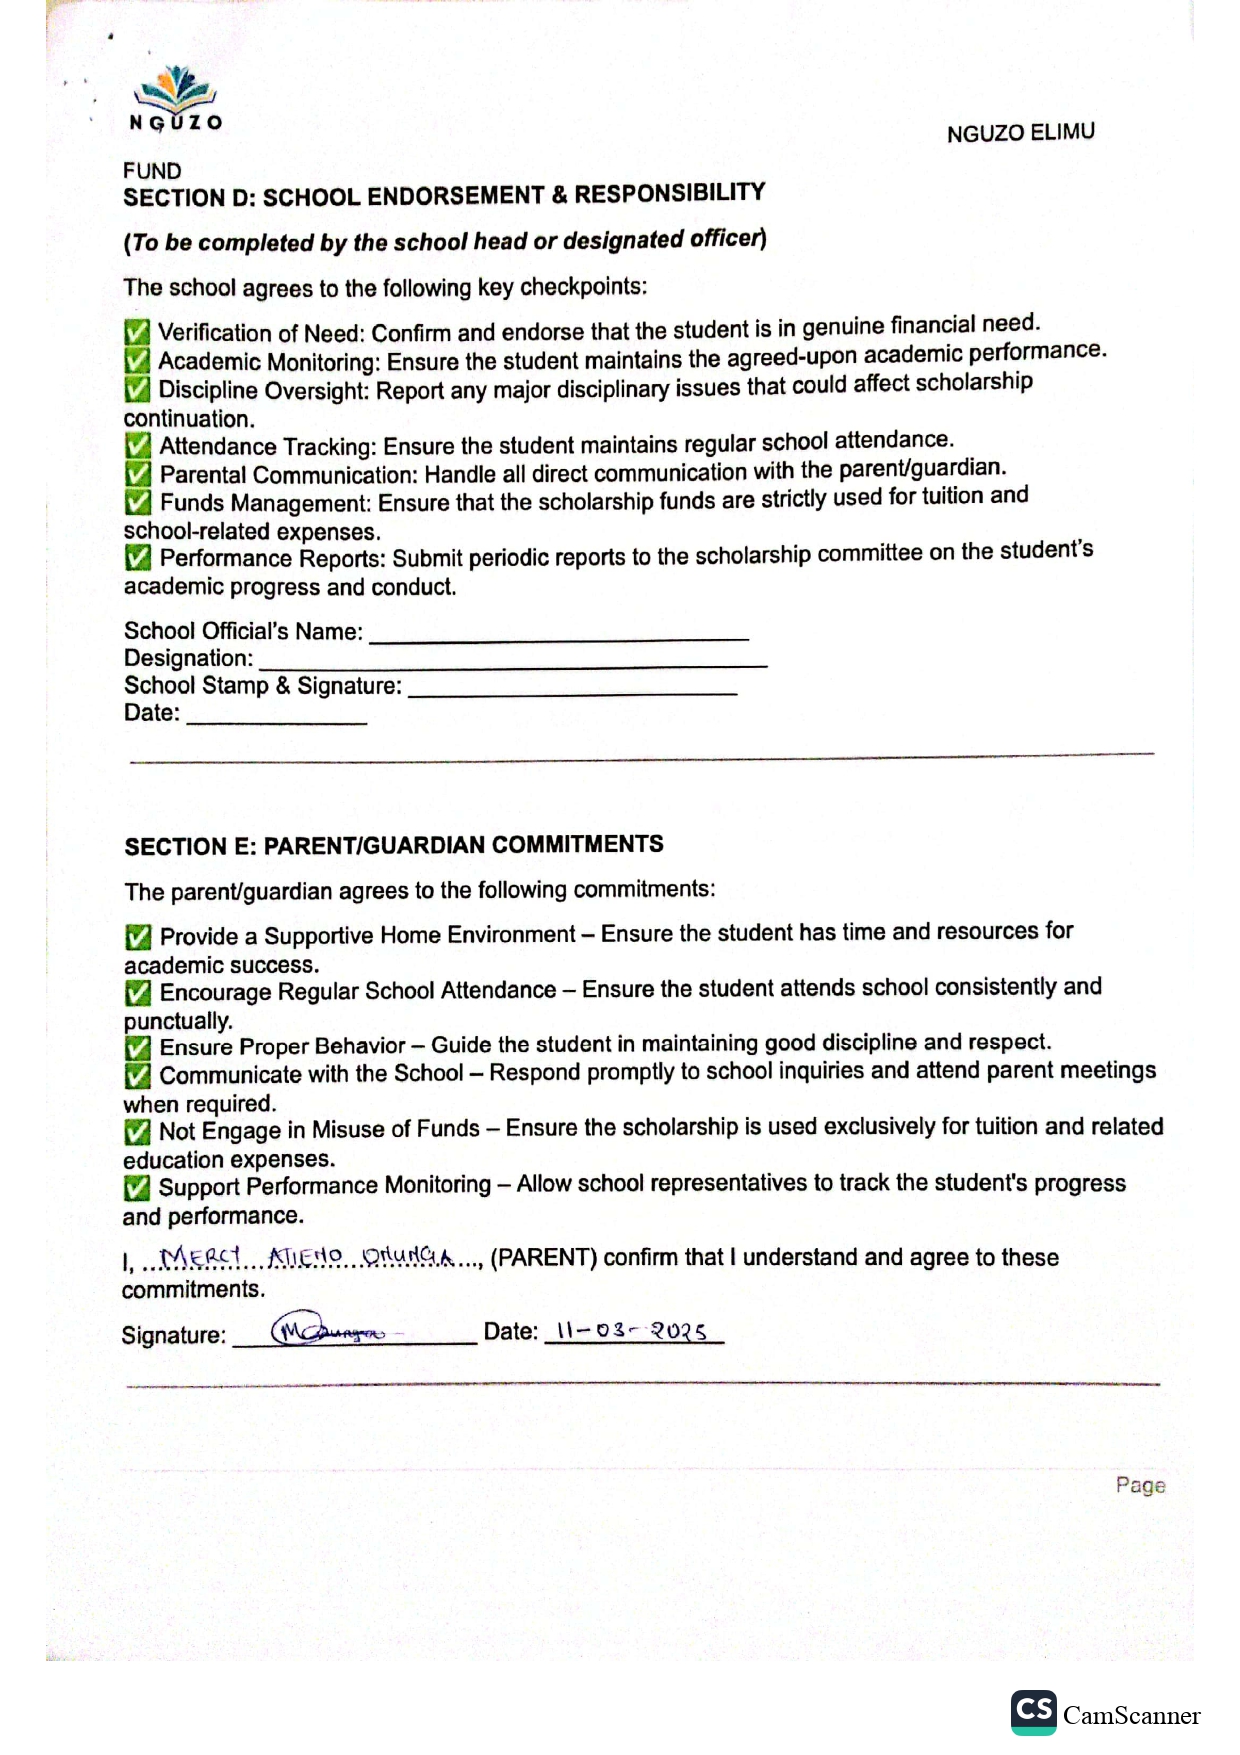 NGUZO
NGUZO ELIMU
FUND
SECTION D: SCHOOL ENDORSEMENT & RESPONSIBILITY
(To be completed by the school head or designated officer)
The school agrees to the following key checkpoints:
✅ Verification of Need: Confirm and endorse that the student is in genuine financial need.
✅ Academic Monitoring: Ensure the student maintains the agreed-upon academic performance.
✅ Discipline Oversight: Report any major disciplinary issues that could affect scholarship
continuation.
✅ Attendance Tracking: Ensure the student maintains regular school attendance.
✅ Parental Communication: Handle all direct communication with the parent/guardian.
✅ Funds Management: Ensure that the scholarship funds are strictly used for tuition and
school-related expenses.
✅ Performance Reports: Submit periodic reports to the scholarship committee on the student's
academic progress and conduct.
School Official's Name: ____________________
Designation: ____________________
School Stamp & Signature: ____________________
Date: ____________
SECTION E: PARENT/GUARDIAN COMMITMENTS
The parent/guardian agrees to the following commitments:
✅ Provide a Supportive Home Environment – Ensure the student has time and resources for
academic success.
✅ Encourage Regular School Attendance – Ensure the student attends school consistently and
punctually.
✅ Ensure Proper Behavior – Guide the student in maintaining good discipline and respect.
✅ Communicate with the School – Respond promptly to school inquiries and attend parent meetings
when required.
✅ Not Engage in Misuse of Funds – Ensure the scholarship is used exclusively for tuition and related
education expenses.
✅ Support Performance Monitoring – Allow school representatives to track the student's progress
and performance.
I, ...MERCY ATIENO OMUNGA..., (PARENT) confirm that I understand and agree to these
commitments.
Signature: Date: 11-03-2025
Page
CS CamScanner